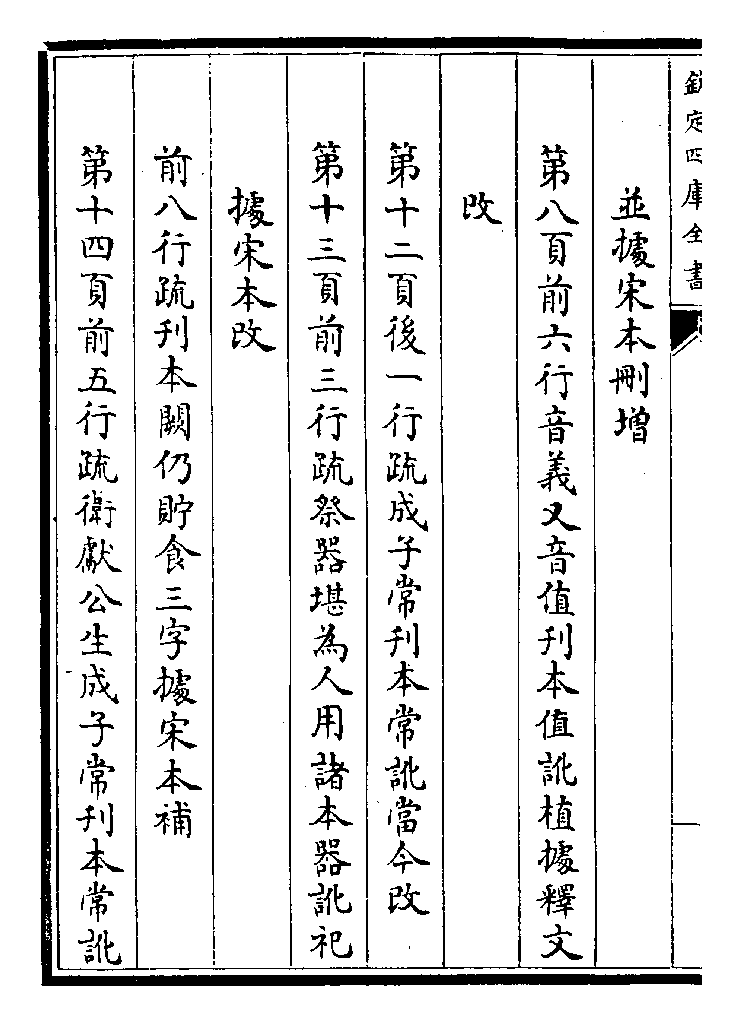 欽定四庫全書
並據宋本刪増
第八頁前六行音義又音值刊本值訛植據釋文
改
第十二頁後一行疏成子常刊本常訛當今改
第十三頁前三行疏祭器堪為人用諸本器訛祀
據宋本改
前八行疏刊本闕仍貯食三字據宋本補
第十四頁前五行疏衛獻公生成子常刊本常訛